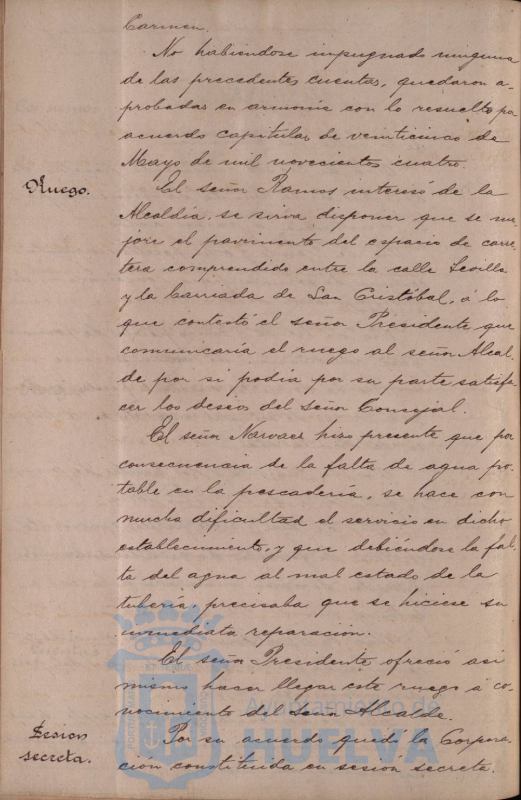 Carmen.
No habiendose impugnado ninguna
de las precedentes cuentas, quedaron a-
probadas en armonía con lo resuelto por
acuerdo capitular de veinticinco de
Mayo de mil novecientos cuatro.
Ruego.
El señor Ramos interesó de la
Alcaldía, se sirva disponer que se me-
jore el pavimento del espacio de carre-
tera comprendido entre la calle Sevilla
y la barriada de San Cristóbal, á lo
que contestó el señor Presidente que
comunicaría el ruego al señor Alcal-
de por si podia por su parte satisfa-
cer los deseos del señor Consejal.
El señor Narvaez hizo presente que por
consecuencia de la falta de agua po-
table en la pescadería, se hace con
mucha dificultad el servicio en dicho
establecimiento, y que debiéndose la fal-
ta del agua al mal estado de la
tubería, precisaba que se hiciese su
inmediata reparación.
El señor Presidente ofreció asi
mismo hacer llegar este ruego á co-
nocimiento del señor Alcalde.
Sesion
secreta.
Por su acuerdo quedó la Corpora-
ción constituida en sesión secreta.
Ayuntamiento de
HUELVA